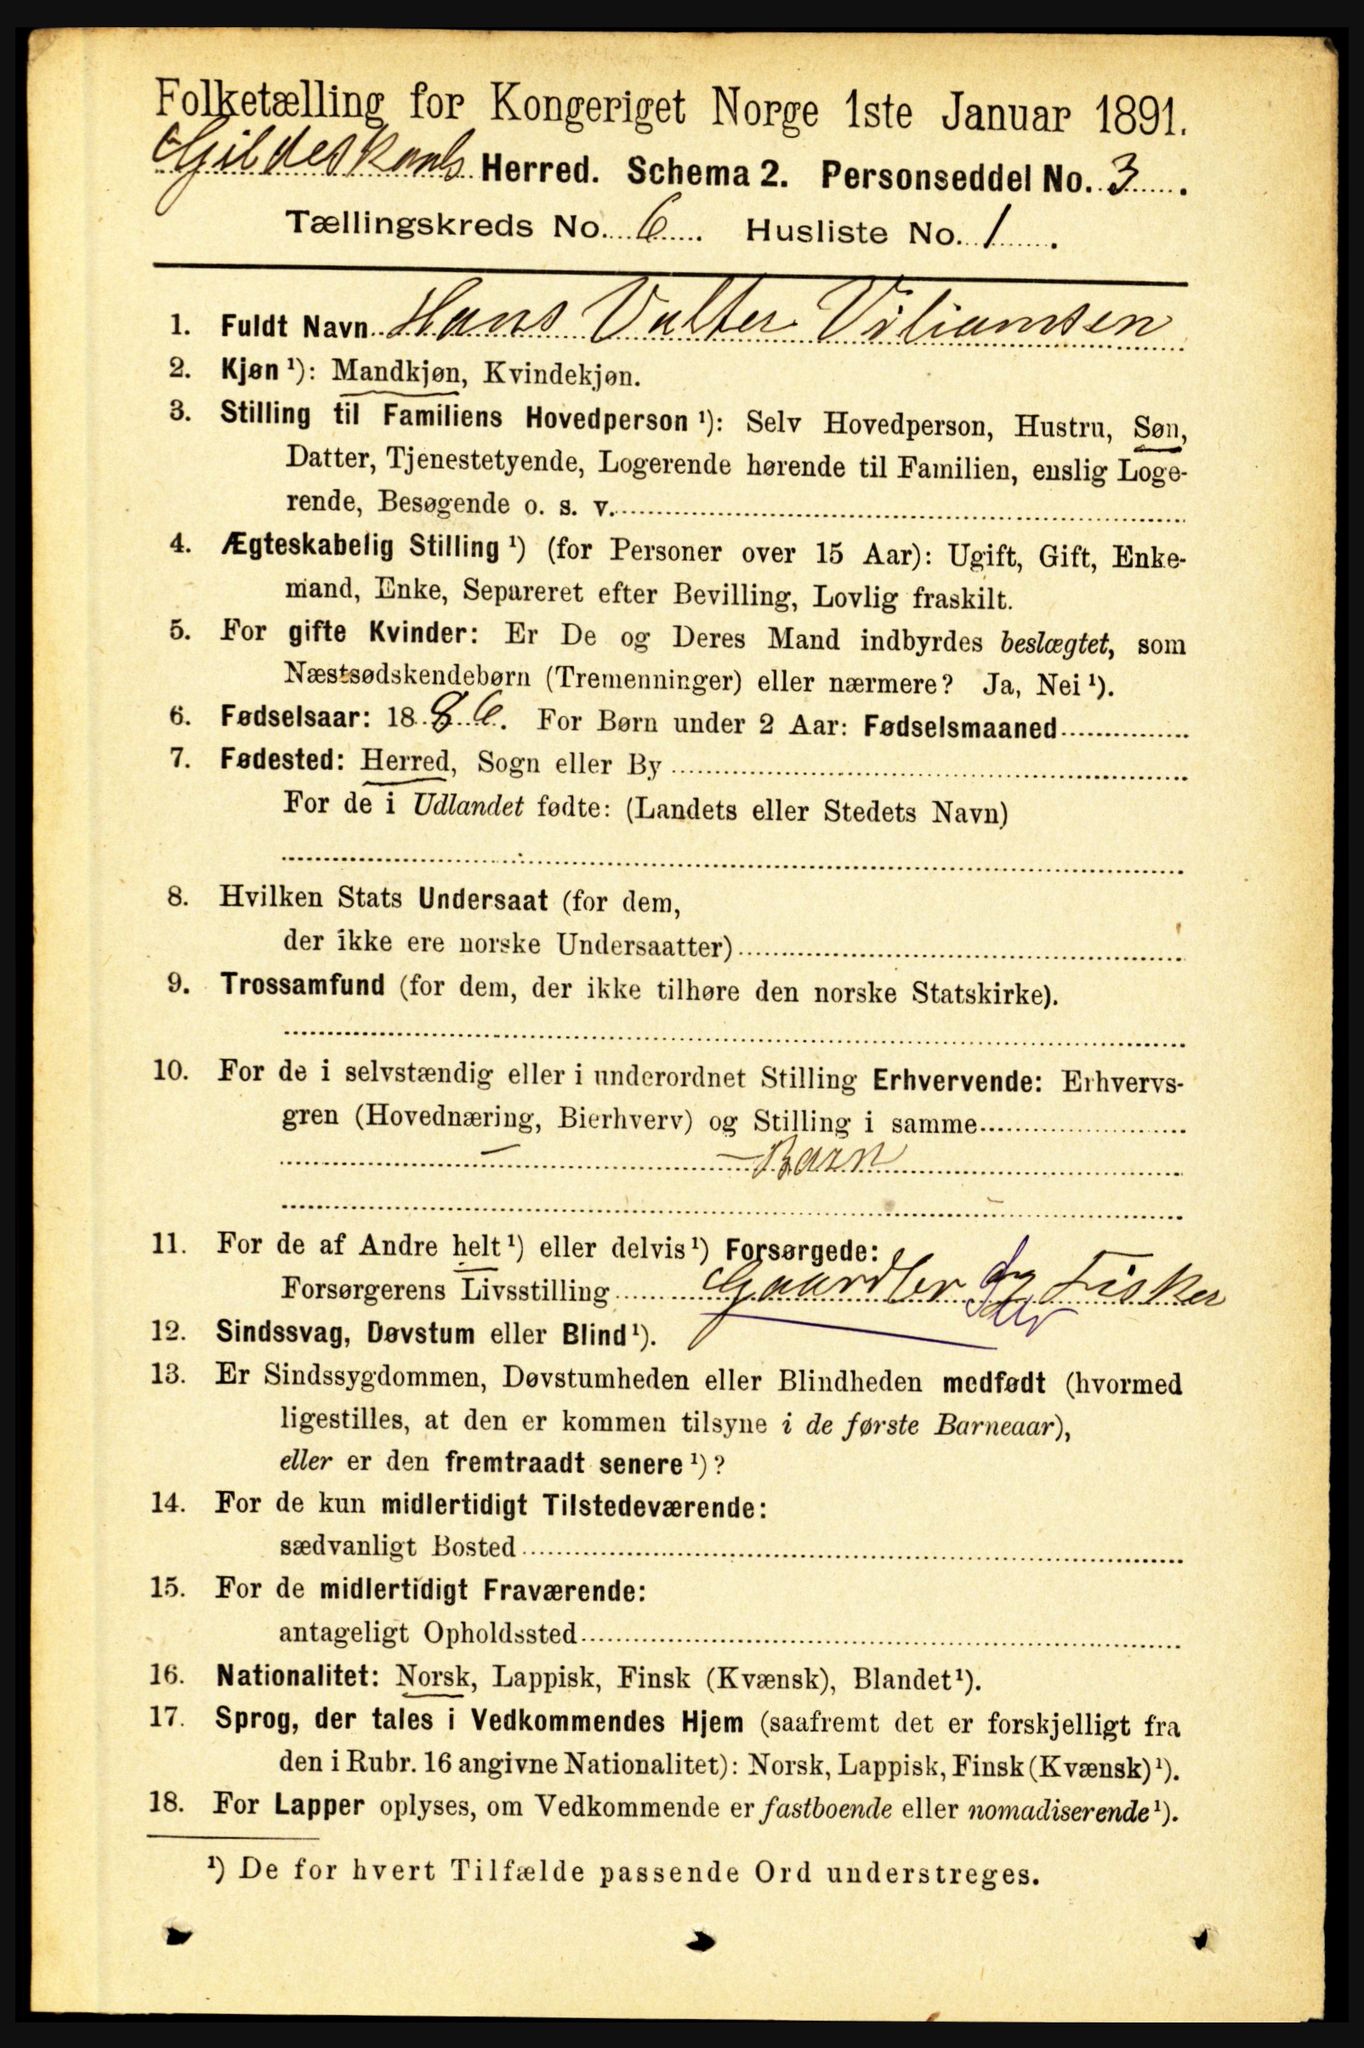 Folketælling for Kongeriget Norge 1ste Januar 1891.
Gildeskaals Herred. Schema 2. Personseddel No. 3.
Tællingskreds No. 6. Husliste No. 1.
1. Fuldt Navn Hans Valter Viliamsen
2. Kjøn ¹): Mandkjøn, Kvindekjøn.
3. Stilling til Familiens Hovedperson ¹): Selv Hovedperson, Hustru, Søn,
Datter, Tjenestetyende, Logerende hørende til Familien, enslig Loge-
rende, Besøgende o. s. v.
4. Ægteskabelig Stilling ¹) (for Personer over 15 Aar): Ugift, Gift, Enke-
mand, Enke, Separeret efter Bevilling, Lovlig fraskilt.
5. For gifte Kvinder: Er De og Deres Mand indbyrdes beslægtet, som
Næstsødskendebørn (Tremenninger) eller nærmere? Ja, Nei ¹).
6. Fødselsaar: 1886. For Børn under 2 Aar: Fødselsmaaned
7. Fødested: Herred, Sogn eller By
For de i Udlandet fødte: (Landets eller Stedets Navn)
8. Hvilken Stats Undersaat (for dem,
der ikke ere norske Undersaatter)
9. Trossamfund (for dem, der ikke tilhøre den norske Statskirke).
10. For de i selvstændig eller i underordnet Stilling Erhvervende: Erhvervs-
gren (Hovednæring, Bierhverv) og Stilling i samme
— — Barn
11. For de af Andre helt ¹) eller delvis ¹) Forsørgede:
Forsørgerens Livsstilling Gaardbr og Fisker
12. Sindssvag, Døvstum eller Blind ¹).
13. Er Sindssygdommen, Døvstumheden eller Blindheden medfødt (hvormed
ligestilles, at den er kommen tilsyne i de første Barneaar),
eller er den fremtraadt senere ¹)?
14. For de kun midlertidigt Tilstedeværende:
sædvanligt Bosted
15. For de midlertidigt Fraværende:
antageligt Opholdssted
16. Nationalitet: Norsk, Lappisk, Finsk (Kvænsk), Blandet ¹).
17. Sprog, der tales i Vedkommendes Hjem (saafremt det er forskjelligt fra
den i Rubr. 16 angivne Nationalitet): Norsk, Lappisk, Finsk (Kvænsk) ¹).
18. For Lapper oplyses, om Vedkommende er fastboende eller nomadiserende ¹).
¹) De for hvert Tilfælde passende Ord understreges.